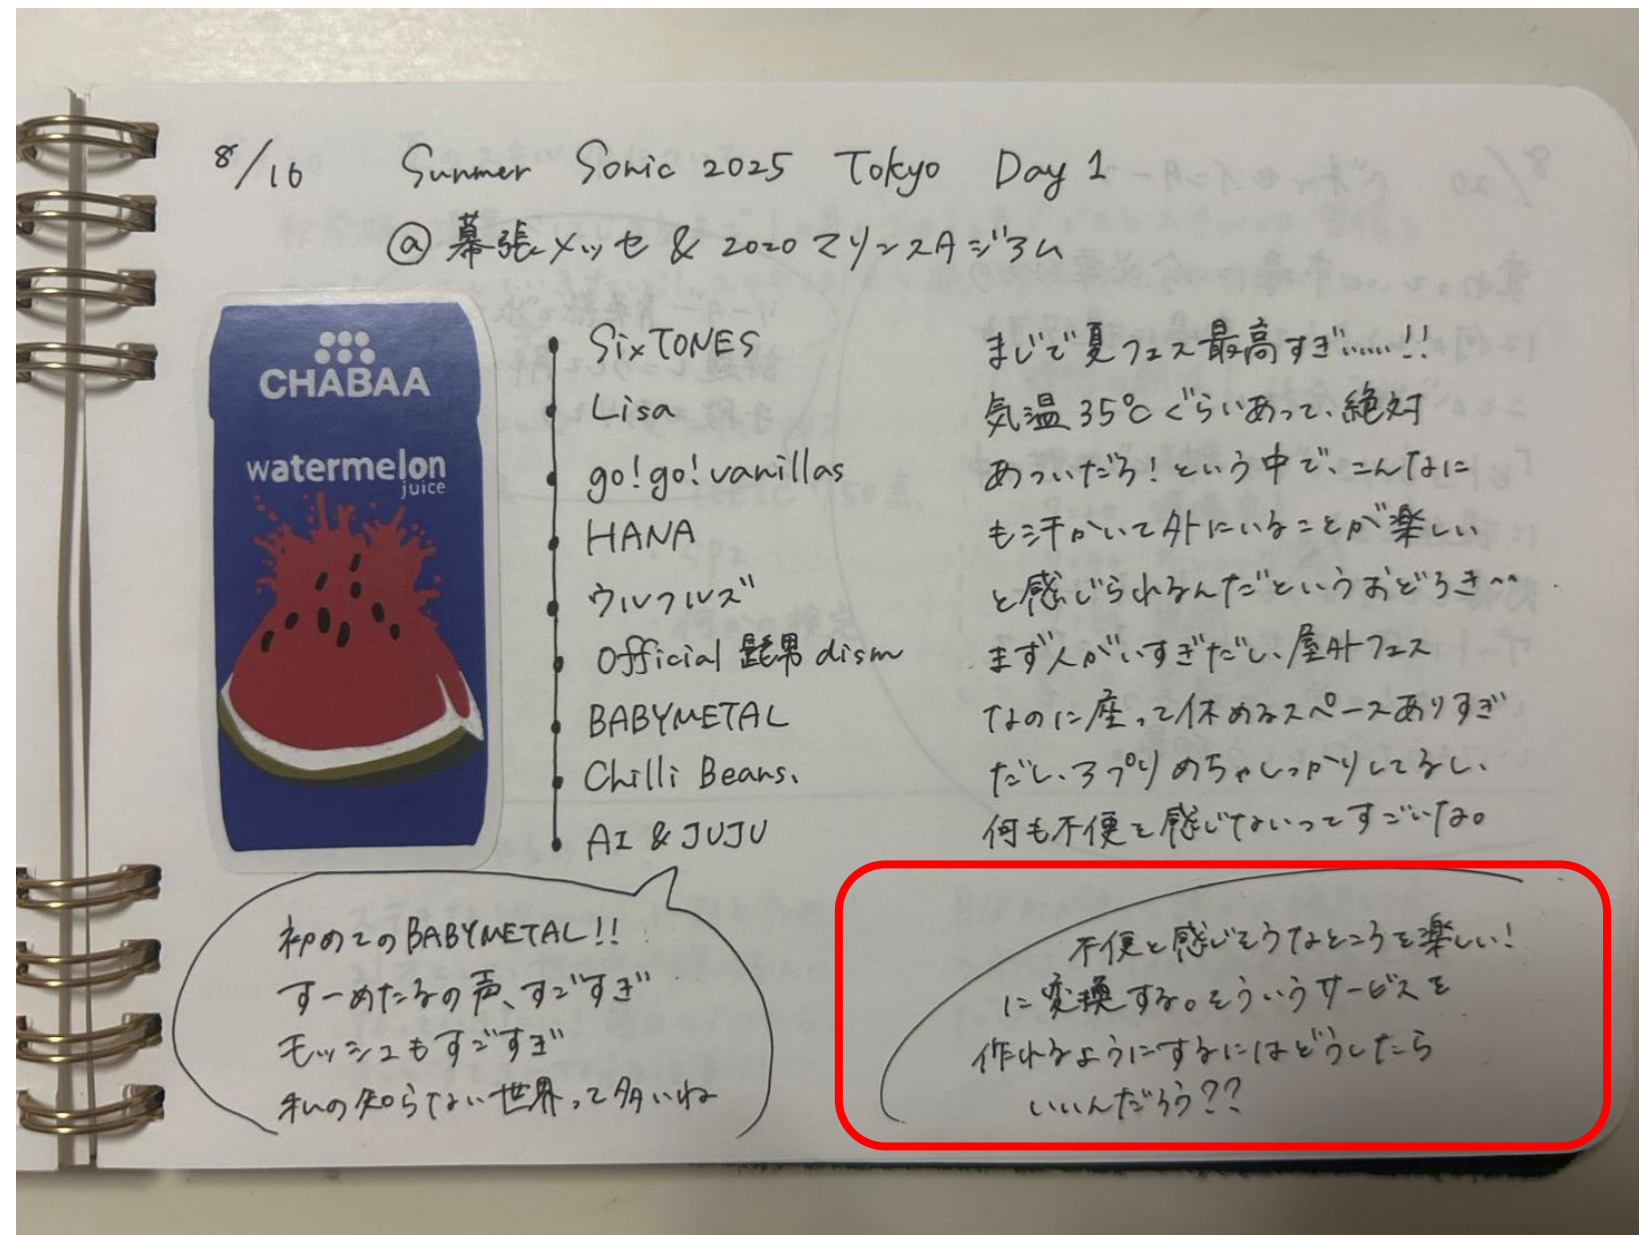 8/16 Summer Sonic 2025 Tokyo Day 1
@ 幕張メッセ & ZOZOマリンスタジアム
CHABAA
watermelon
juice
SixTONES
Lisa
go!go!vanillas
HANA
ウルフルズ
Official 髭男 dism
BABYMETAL
Chilli Beans.
AI & JUJU
まじで夏フェス最高すぎ……!!
気温35℃ぐらいあって、絶対
あついだろ！という中で、こんなに
も汗かいて外にいることが楽しい
と感じられるんだというおどろき〜
まず人がいすぎだし、屋外フェス
なのに座って休めるスペースありすぎ
だし、アプリめちゃしっかりしてるし、
何も不便を感じないってすごいな。
初めてのBABYMETAL!!
すーめたるの声、すごすぎ
モッシュもすごすぎ
私の知らない世界って多いね
不便と感じそうなところを楽しい！
に変換する。そういうサービスを
作れるようにするにはどうしたら
いいんだろう??